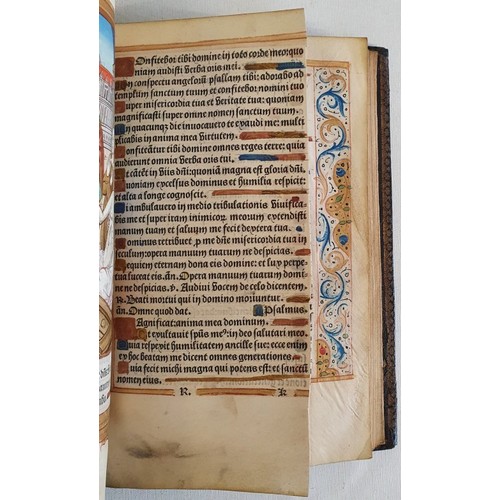 Onfitebor tibi domine in toto corde meo: quo
niam audisti verba oris mei.
In conspectu angelorū psallam tibi: adorabo ad
templum sanctum tuum et confitebor nomini tuo
Super misericordia tua et veritate tua: quoniam
magnificasti super omne nomen sanctum tuum.
In quacunqȝ die invocavero te exaudi me: multi
plicabis in anima mea virtutem.
Confiteātur tibi domine omnes reges terre: quia
audierunt omnia verba oris tui.
Et cātēt in viis dñi: quoniam magna est gloria dñi.
Quoniam excelsus dominus et humilia respicit
et alta a longe cognoscit.
Si ambulavero in medio tribulationis vivifica
bis me et super iram inimicorū meorum extendisti
manum tuam et salvum me fecit dextera tua.
Dominus retribuet ꝓ me dñe misericordia tua in
seculum: opera manuum tuarum ne despicias.
Requiem eternam dona eis domine: et lux perpe
tua luceat eis. añ. Opera manuum tuarum domi
ne ne despicias. v. Audivi vocem de celo dicentem.
R. Beati mortui qui in domino moriuntur.
añ. Omne quod dat. Psalmus.
Magnificat: anima mea dominum.
Et exultavit spūs me: in deo salutari meo.
Quia respexit humilitatem ancille sue: ecce enim
ex hoc beatam me dicent omnes generationes
Quia fecit michi magna qui potens est: et sanctū
nomen eius.
R. k